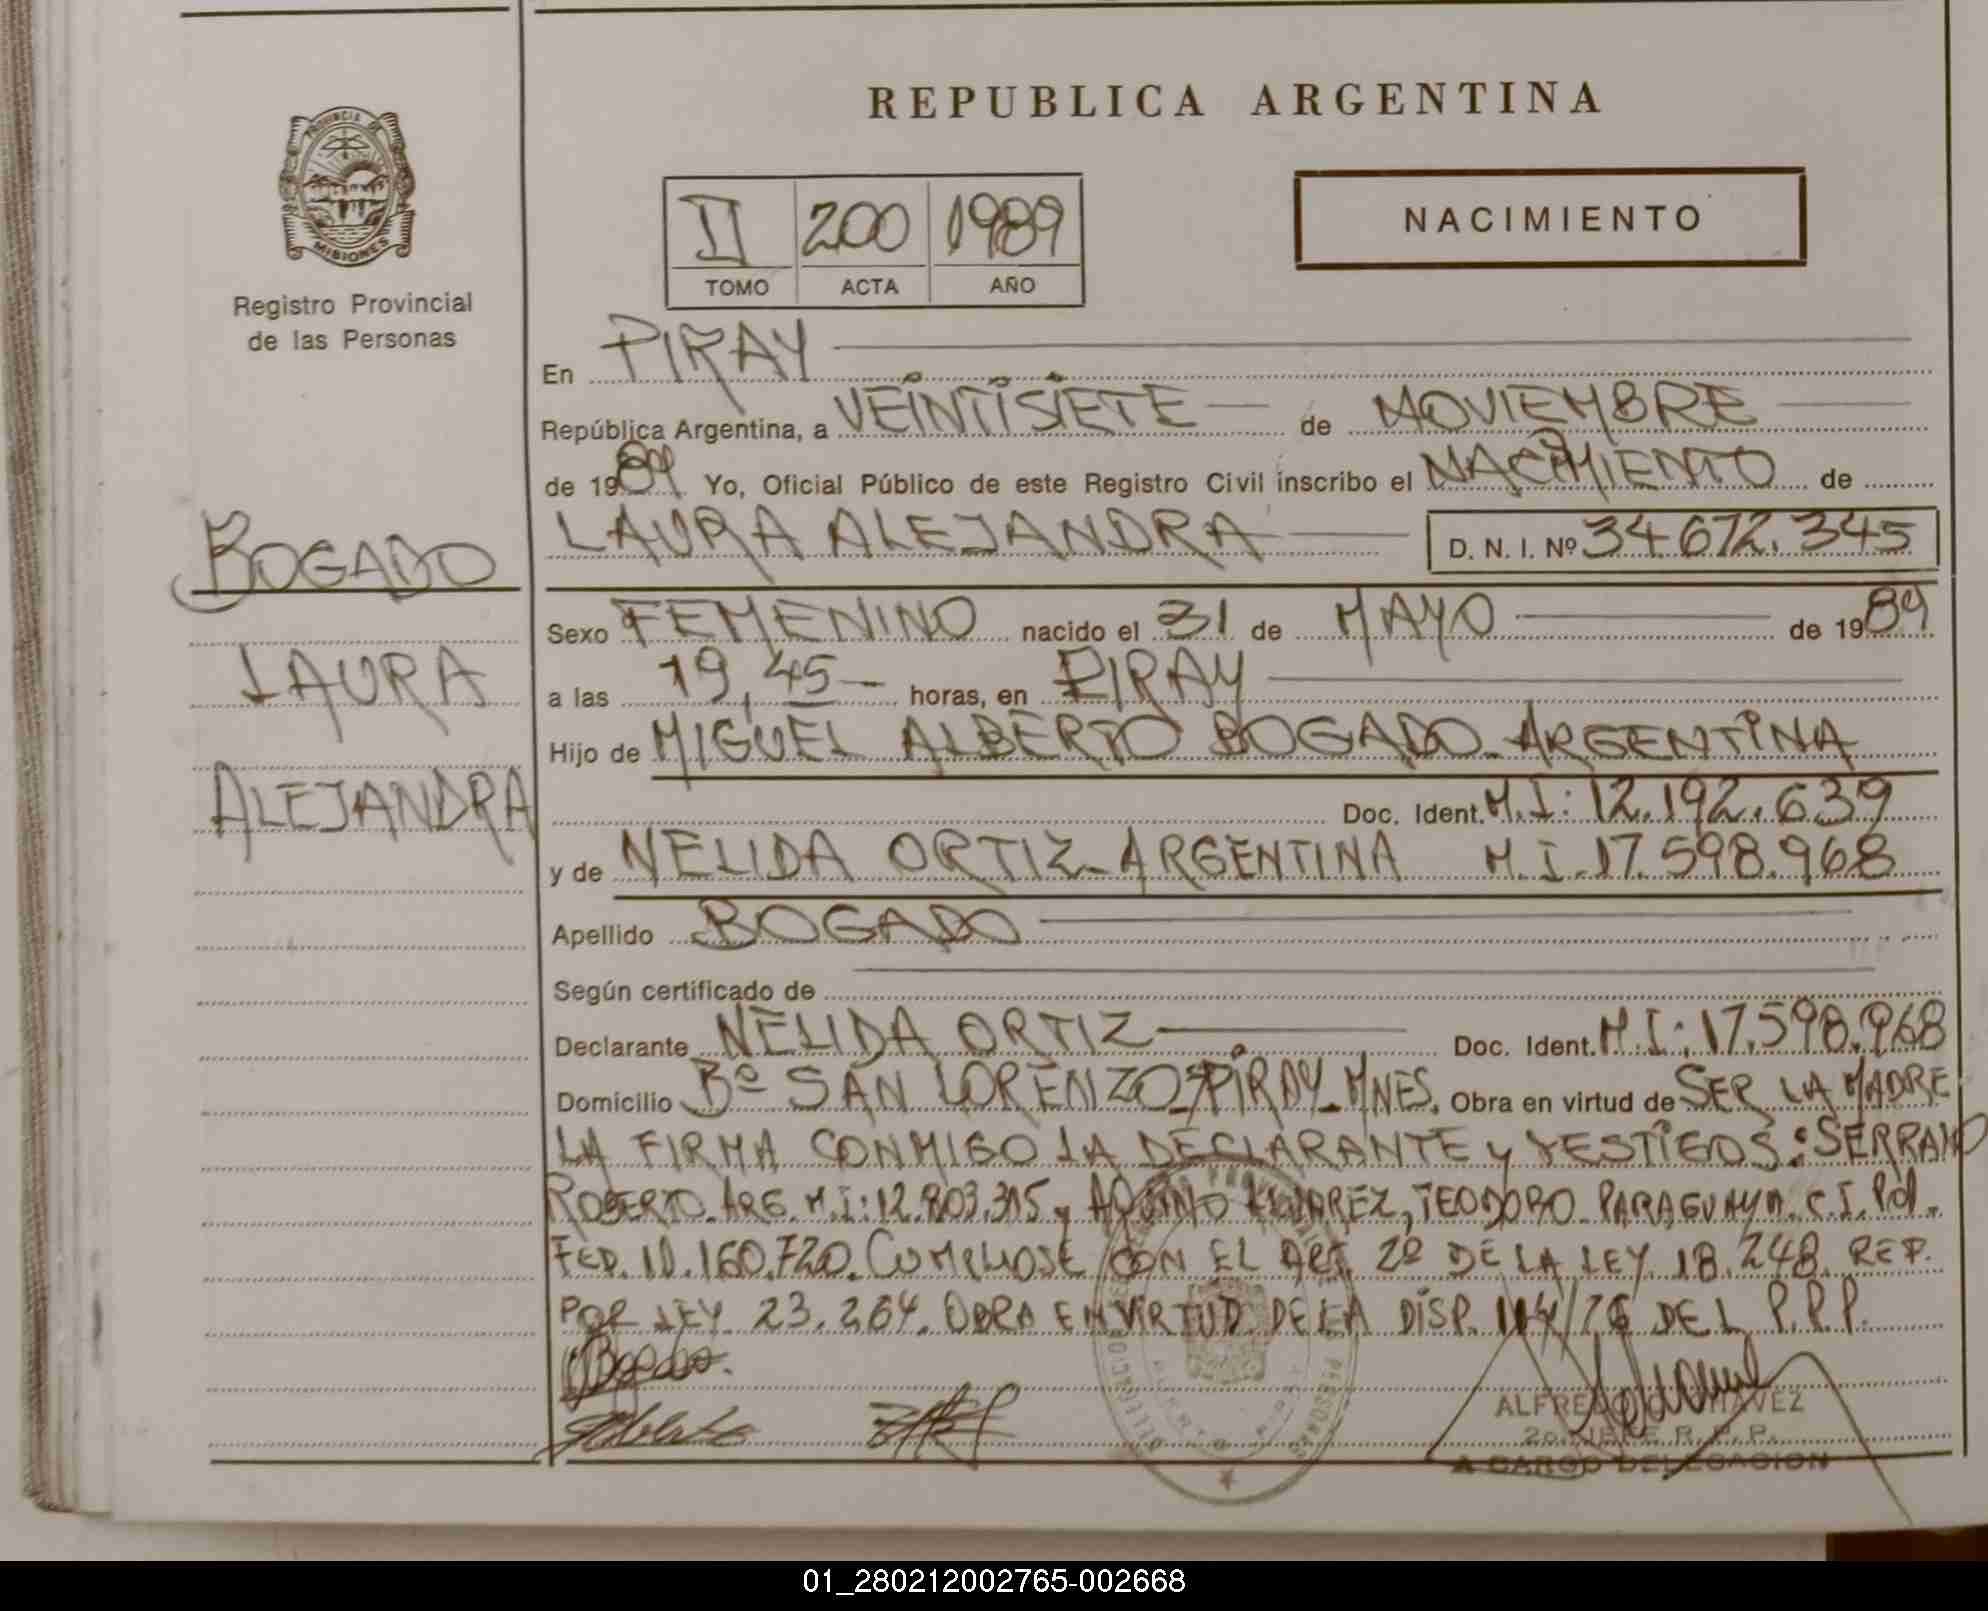 REPUBLICA ARGENTINA
PROVINCIA DE
MISIONES
Registro Provincial
de las Personas
II 200 1989
TOMO ACTA AÑO
NACIMIENTO
En PIRAY
República Argentina, a VEINTISIETE de NOVIEMBRE
de 1989 Yo, Oficial Público de este Registro Civil inscribo el NACIMIENTO de
LAURA ALEJANDRA D. N. I. Nº 34.672.345
BOGADO
LAURA
ALEJANDRA
Sexo FEMENINO nacido el 31 de MAYO de 1989
a las 19,45 horas, en PIRAY
Hijo de MIGUEL ALBERTO BOGADO-ARGENTINA
Doc. Ident. M.I: 12.192.639
y de NELIDA ORTIZ-ARGENTINA M.I.17.598.968
Apellido BOGADO
Según certificado de
Declarante NELIDA ORTIZ Doc. Ident. M.I: 17.598.968
Domicilio Bº SAN LORENZO-PIRAY-MNES. Obra en virtud de SER LA MADRE
LA FIRMA CONMIGO LA DECLARANTE y TESTIGOS: SERRANO
ROBERTO-ARG. M.I: 12.803.315 y AQUINO ALVAREZ, TEODORO-PARAGUAYA. C.I. Pol.
FED. 10.160.720. CUMPLIOSE CON EL ART. 2º DE LA LEY 18.248. REF.
POR LEY 23.264. OBRA EN VIRTUD DE LA DISP. 114/76 DEL P.P.P.
ALFREDO CHAVEZ
2o. JEFE R. P. P.
A CARGO DELEGACION
01_280212002765-002668